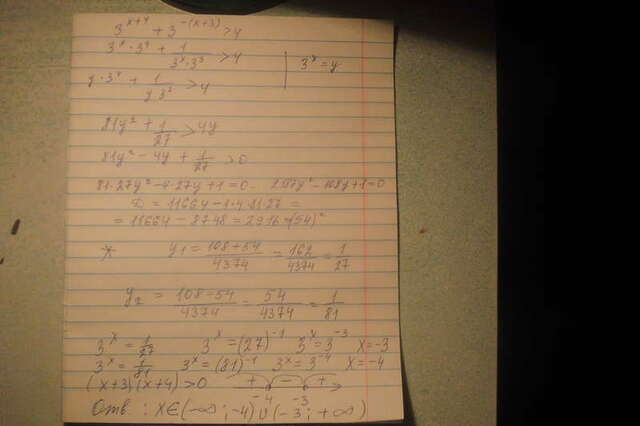 3^(x+4) + 3^(-(x+3)) > 4
3^x · 3^4 + 1/(3^x · 3^3) > 4 | 3^x = y
y · 3^4 + 1/(y 3^3) > 4
81y² + 1/27 > 4y
81y² - 4y + 1/27 > 0
81·27y² - 4·27y + 1 = 0. 2187y² - 108y + 1 = 0
D = 11664 - 4·4·81·27 =
= 11664 - 8748 = 2916 = (54)²
y₁ = (108+54)/4374 = 162/4374 = 1/27
y₂ = (108-54)/4374 = 54/4374 = 1/81
3^x = 1/27 3^x = (27)^-1 3^x = 3^-3 x = -3
3^x = 1/81 3^x = (81)^-1 3^x = 3^-4 x = -4
(x+3)(x+4) > 0 + - +
-4 -3
Отв. : x∈(-∞; -4)∪(-3; +∞)